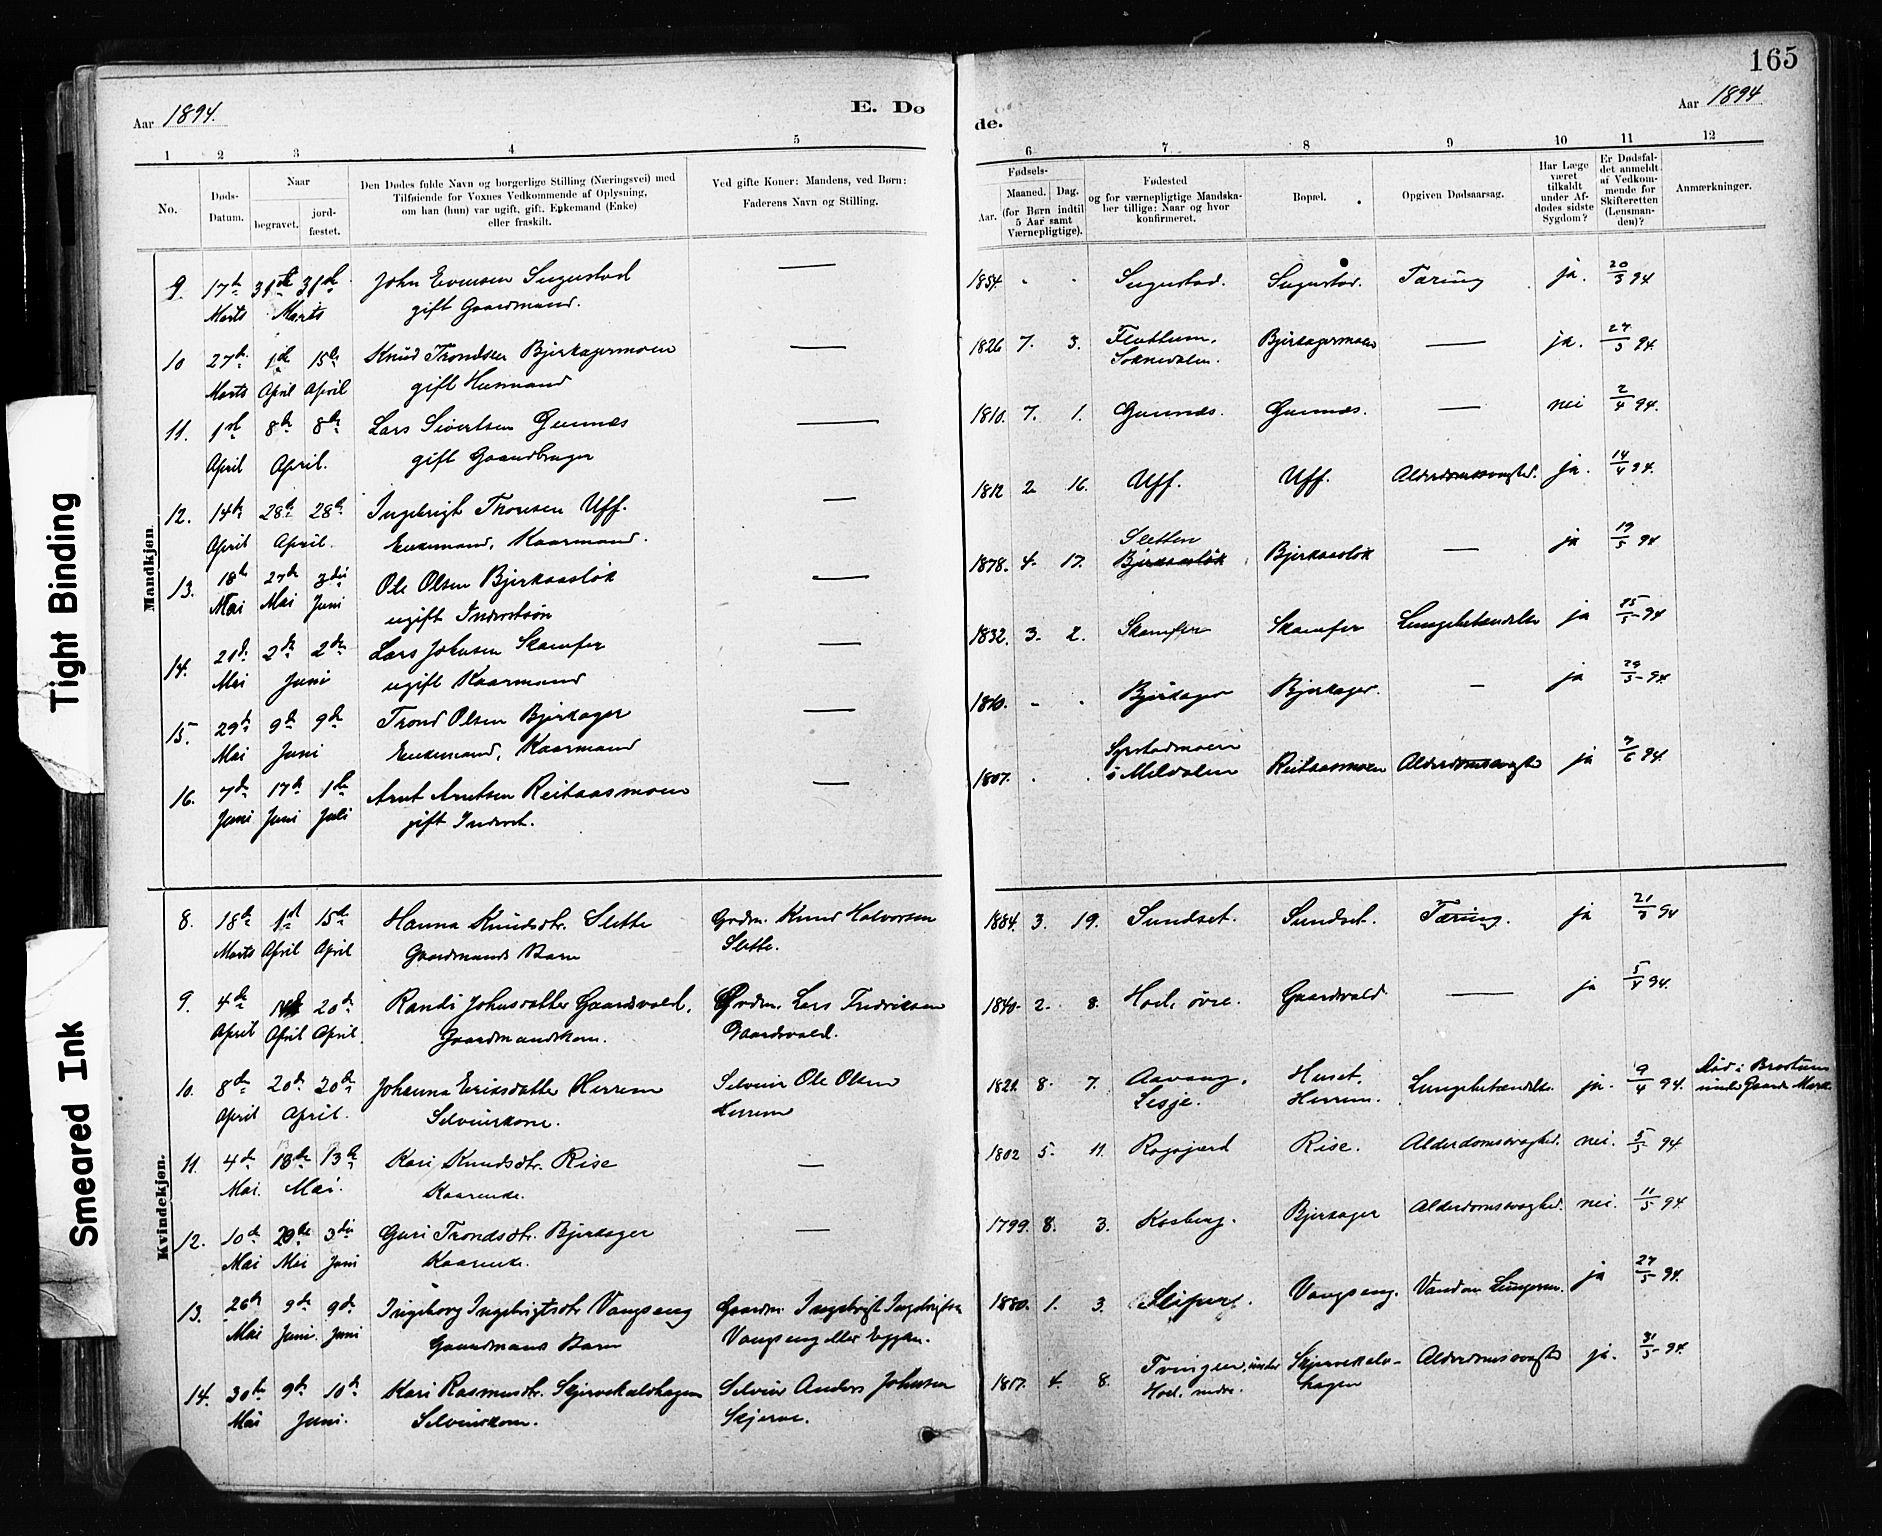 165
Aar 1894.
E. Dø
de.
Aar 1894
1 2 3 4 5
6 7 8 9 10 11 12
No.
Døds-
Datum.
Naar
begravet.
jord-
fæstet.
Den Dødes fulde Navn og borgerlige Stilling (Næringsvei) med
Tilføiende for Voxnes Vedkommende af Oplysning,
om han (hun) var ugift, gift, Enkemand (Enke)
eller fraskilt.
Ved gifte Koner: Mandens, ved Børn:
Faderens Navn og Stilling.
Fødsels-
Aar.
Maaned.
Dag.
(for Børn indtil
5 Aar samt
Værnepligtige).
Fødested
og for værnepligtige Mandska-
ber tillige: Naar og hvor
konfirmeret.
Bopæl.
Opgiven Dødsaarsag.
Har Læge
været
tilkaldt
under Af-
dødes sidste
Sygdom?
Er Dødsfal-
det anmeldt
af Vedkom-
mende for
Skifteretten
(Lensman-
den)?
Anmærkninger.
Mandkjøn.
9. 17de 31te 31te John Evensen Sugustad — 1854. Sugustad. Sugustad. Tæring ja. 20/3 94
Marts Marts gift Gaardmand.
10 27de 1ste 15de Knud Trondsen Bjerkagermoen — 1826 7. 3. Flottum, Bjerkagermoen — ja. 27/3 94.
Marts April April gift Husmand Soknedalen.
11. 1ste 8de 8de Lars Sivertsen Gunnæs — 1810. 7. 1. Gunnæs. Gunnæs. — nei 2/4 94.
April April. gift Gaardbruger
12. 14de 28de 28de Ingebrigt Thoresen Uff. — 1812 2 16. Uff. Uff. Alderdomssvaghed. ja. 14/4 94.
April April. Enkemand, Kaarmand.
13. 18de 27de 3die Ole Olsen Bjerkaasløk — 1878. 4. 17. Sletten Bjerkaasløk Bjerkaasløk — ja 19/5 94
Mai Mai Juni ugift Inderstsøn
14. 20de 2den 2den Lars Johnsen Skamfer — 1832. 3. 2. Skamfer Skamfer Lungebetændelse ja 25/5 94
Mai Juni ugift Kaarmand
15. 29de 9de 9de Trond Olsen Bjerkager — 1810. Bjerkager Bjerkager. — ja 29/5 94.
Mai Juni Enkemand, Kaarmand
16. 7de 17de 1ste Arnt Arntsen Reitaasmoen — 1807. Syrstadmoen i Meldalen Reitaasmoen Alderdomssvaghed ja 7/6 94.
Juni Juni Juli gift Inderst.
Kvindekjøn.
8. 18de 1ste 15de Hanna Knudsdtr. Slette Grdm. Knud Halvorsen 1884. 3. 19. Sundset. Sundset. Tæring. ja 21/3 94
Marts April April Gaardmands Barn Slette.
9. 4de 14de 20de Randi Johnsdatter Gaardsvold. Grdm. Lars Fredriksen 1840. 2. 8. Hoel, øvre. Gaardsvold — ja 5/4 94.
April April April. Gaardmandskone. Gaardsvold.
10. 8de 20de 20de Johanna Eriksdatter Herrem Selveier Ole Olsen 1821. 8. 7. Aavang, Huset, Lungebetændelse. ja. 9/4 94. Død i Brostuen
April April. Selveierskone. Herrem Lesje. Herrem. under Gaarden
11. 4de 13de 13de Kari Knudsdtr. Rise — 1802 5. 11. Rise. Alderdomssvaghed. nei. 5/5 94
Mai. Mai. Kaarenke.
12. 10de 20de 3die Guri Trondsdtr. Bjerkager — 1799. 8. 3. Kosberg. Bjerkager Alderdomssvaghed. nei. 11/5 94
Mai Mai Juni Kaarenke.
13. 26de 9de 9de Ingeborg Ingebrigtsdtr Vangseng Gaardm. Ingebrigt Ingebrigtsen 1880. 1. 3. Vangseng. Vand om Lungerne. ja 27/5 94.
Mai Juni. Juni Gaardmands Barn Vangseng eller Eggen.
14. 30te 9de 10de Kari Rasmusdtr. Skjerveskaldhagen Selveier Anders Johnsen 1817. 4. 8. Tvingen, under Alderdomssvaghed ja. 31/5 94.
Mai Juni. Selveierskone. Skjerve. Hoel, nedre. hagen
Tight Binding
Smeared Ink